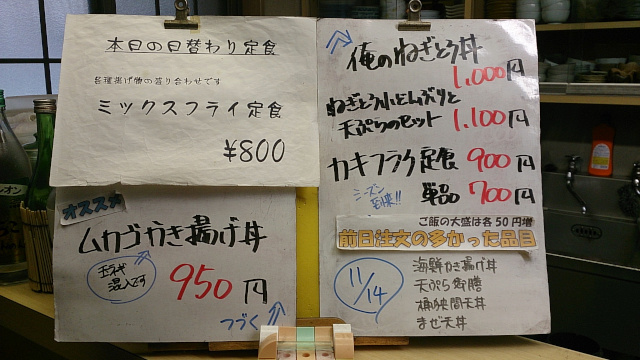 本日の日替わり定食
各種揚げ物の盛り合わせです
ミックスフライ定食
¥800
オススメ
ムカゴかき揚げ丼
玉子代
混入です
950円
つづく
俺のねぎとろ丼
1,000円
ねぎとろ小どんぶりと
天ぷらのセット 1,100円
カキフライ定食 900円
シーズン
到来!!
単品 700円
ご飯の大盛は各50円増
前日注文の多かった品目
11/14
海鮮かき揚げ丼
天ぷら御膳
桶狭間天丼
まぜ天丼